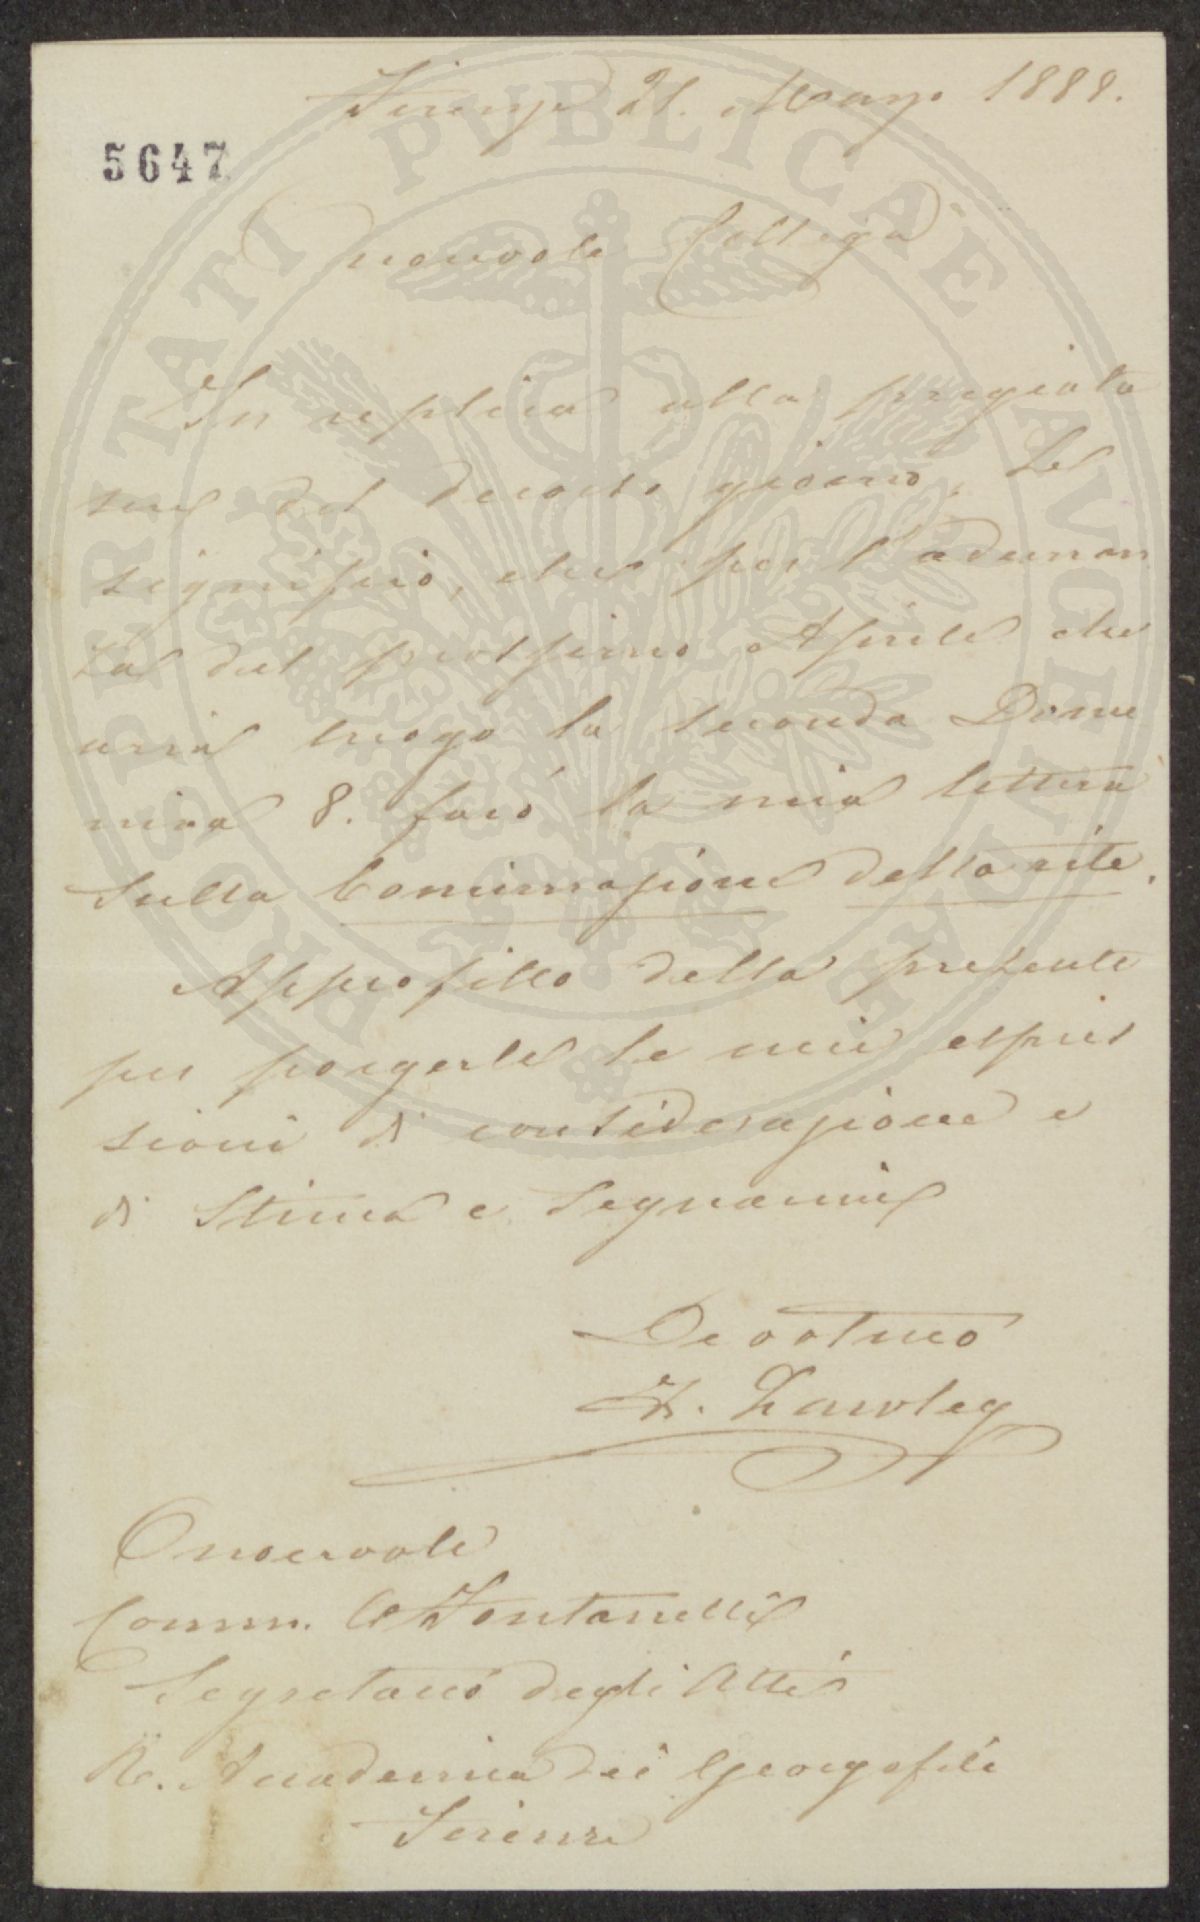 Firenze 21. Marzo 1888.
5647
Onorevole Collega
In replica alla pregiata
sua del decorso giorno, Le
significo, che per l'adunan
za del prossimo Aprile che
avrà luogo la seconda Dome
nica 8. farò la mia lettura
sulla Concimazione della vite.
Approfitto della presente
per porgerle le mie espres
sioni di considerazione e
di stima e segnarmi
Devotmo
F. Lawley
Onorevole
Comm. C. Fontanelli
Segretario degli Atti
R. Accademia dei Georgofili
Firenze
PROSPERITATI PVBLICAE AVGENDAE